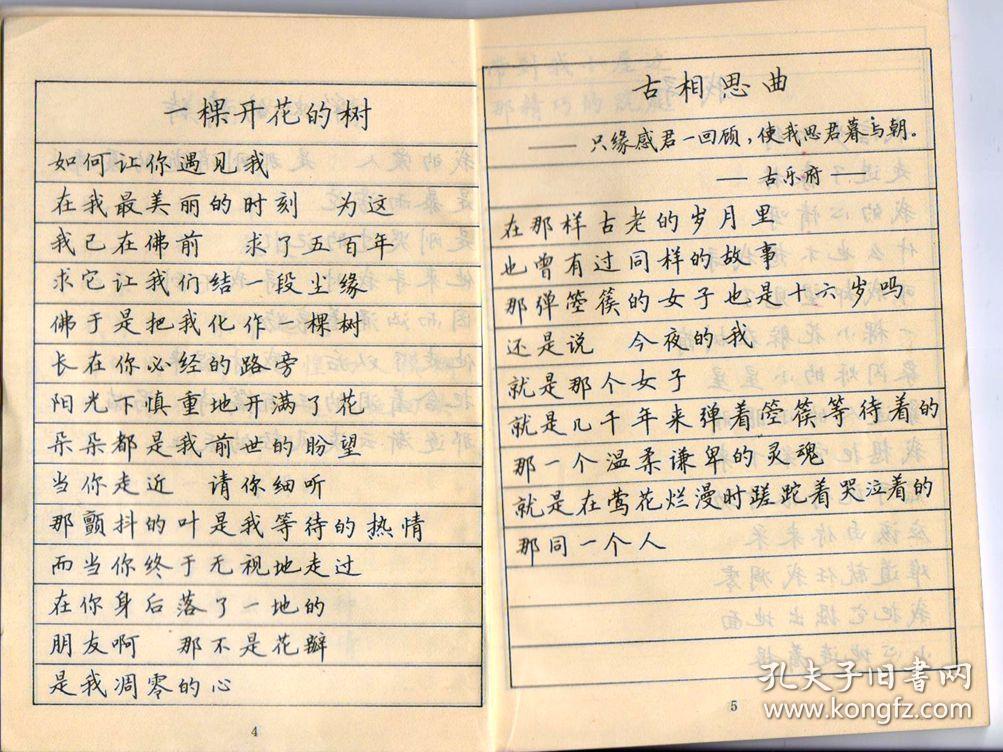 一棵开花的树
如何让你遇见我
在我最美丽的时刻　为这
我已在佛前　求了五百年
求它让我们结一段尘缘
佛于是把我化作一棵树
长在你必经的路旁
阳光下慎重地开满了花
朵朵都是我前世的盼望
当你走近　请你细听
那颤抖的叶是我等待的热情
而当你终于无视地走过
在你身后落了一地的
朋友啊　那不是花瓣
是我凋零的心
4
古相思曲
——只缘感君一回顾，使我思君暮与朝。
——古乐府——
在那样古老的岁月里
也曾有过同样的故事
那弹箜篌的女子也是十六岁吗
还是说　今夜的我
就是那个女子
就是几千年来弹着箜篌等待着的
那一个温柔谦卑的灵魂
就是在莺花烂漫时蹉跎着哭泣着的
那同一个人
5
孔夫子旧书网
www.kongfz.com